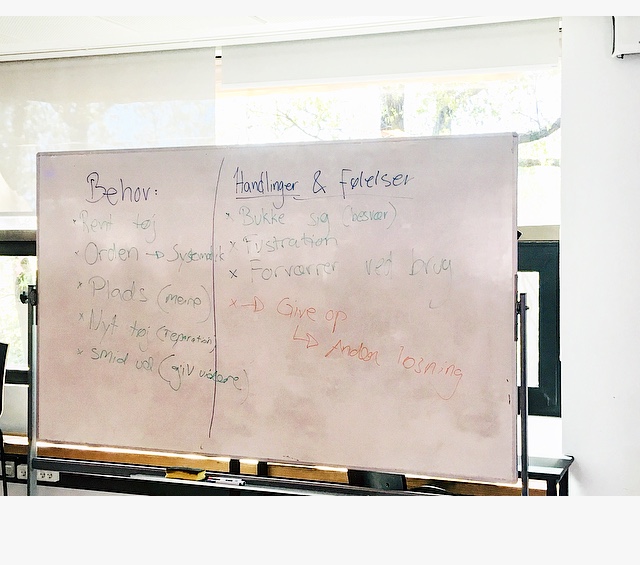 Behov:
* Rent tøj
* Orden → Systematisk
* Plads (mere)
* Nyt tøj (reparation)
* smid ud (giv videre)
Handlinger & Følelser
* Bukke sig (besvær)
* Fustration
* Forværrer ved brug
* → Give op
↳ Anden løsning